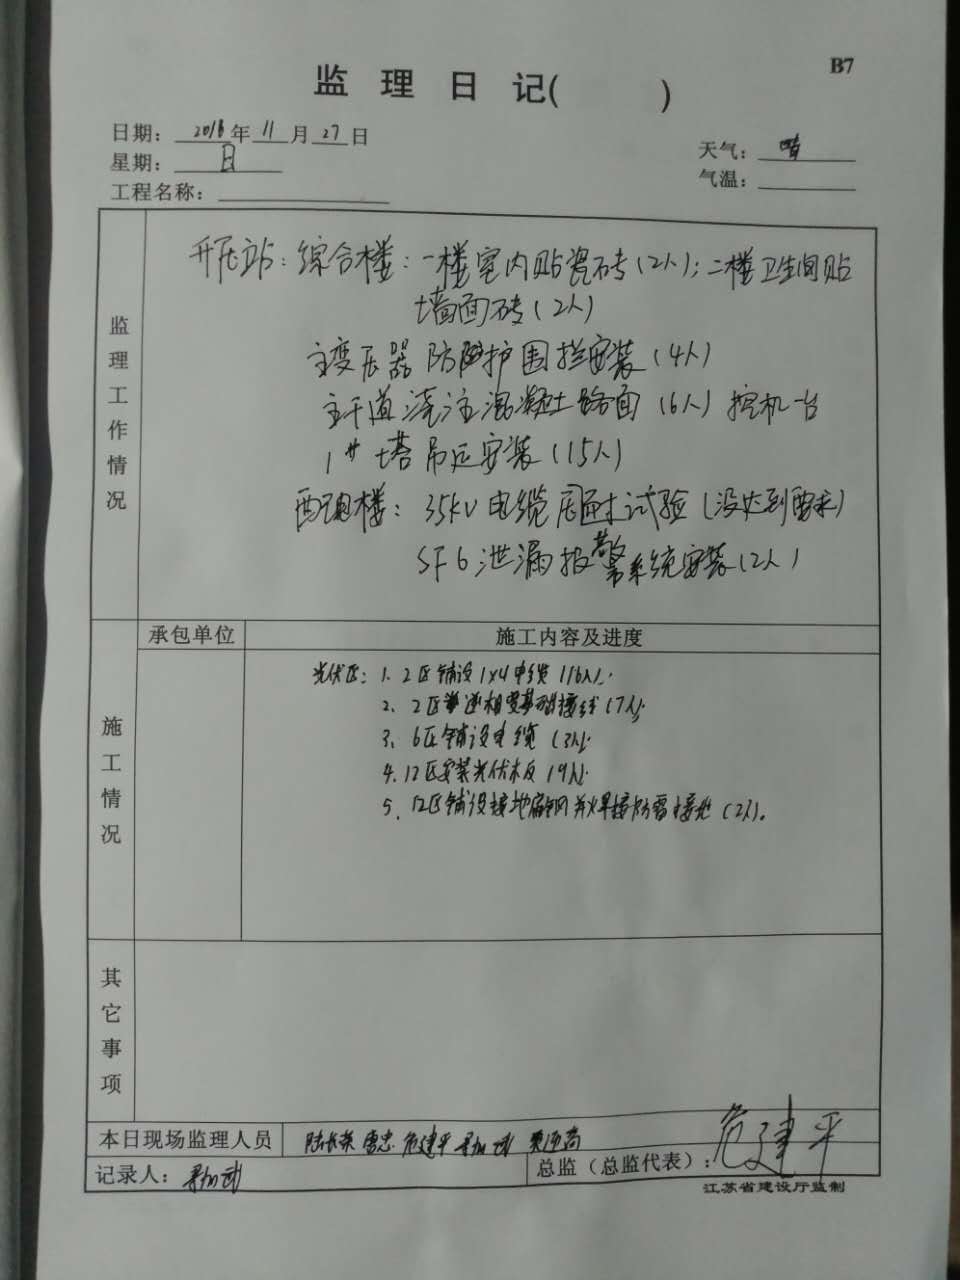 B7
监理日记( )
日期：2016年11月27日
天气：晴
星期：日
气温：
工程名称：
监理工作情况
升压站：综合楼：一楼室内贴瓷砖(2人)；二楼卫生间贴
墙面砖(2人)
主变压器防护围栏安装(4人)
主干道浇注混凝土路面(6人)挖机一台
1#塔吊 安装(15人)
配电楼：35kV电缆 试验(没达到要求)
SF6泄漏报警系统安装(2人)
承包单位
施工内容及进度
施工情况
光伏区：1、2区铺设1x4电缆(16人).
2、2区 箱变基础接线(7人).
3、6区铺设电缆(3人).
4.12区安装光伏板(9人).
5、12区铺设接地扁钢并焊接防雷接地(2人)。
其它事项
本日现场监理人员 唐忠 危建平
记录人：
总监（总监代表）：危建平
江苏省建设厅监制